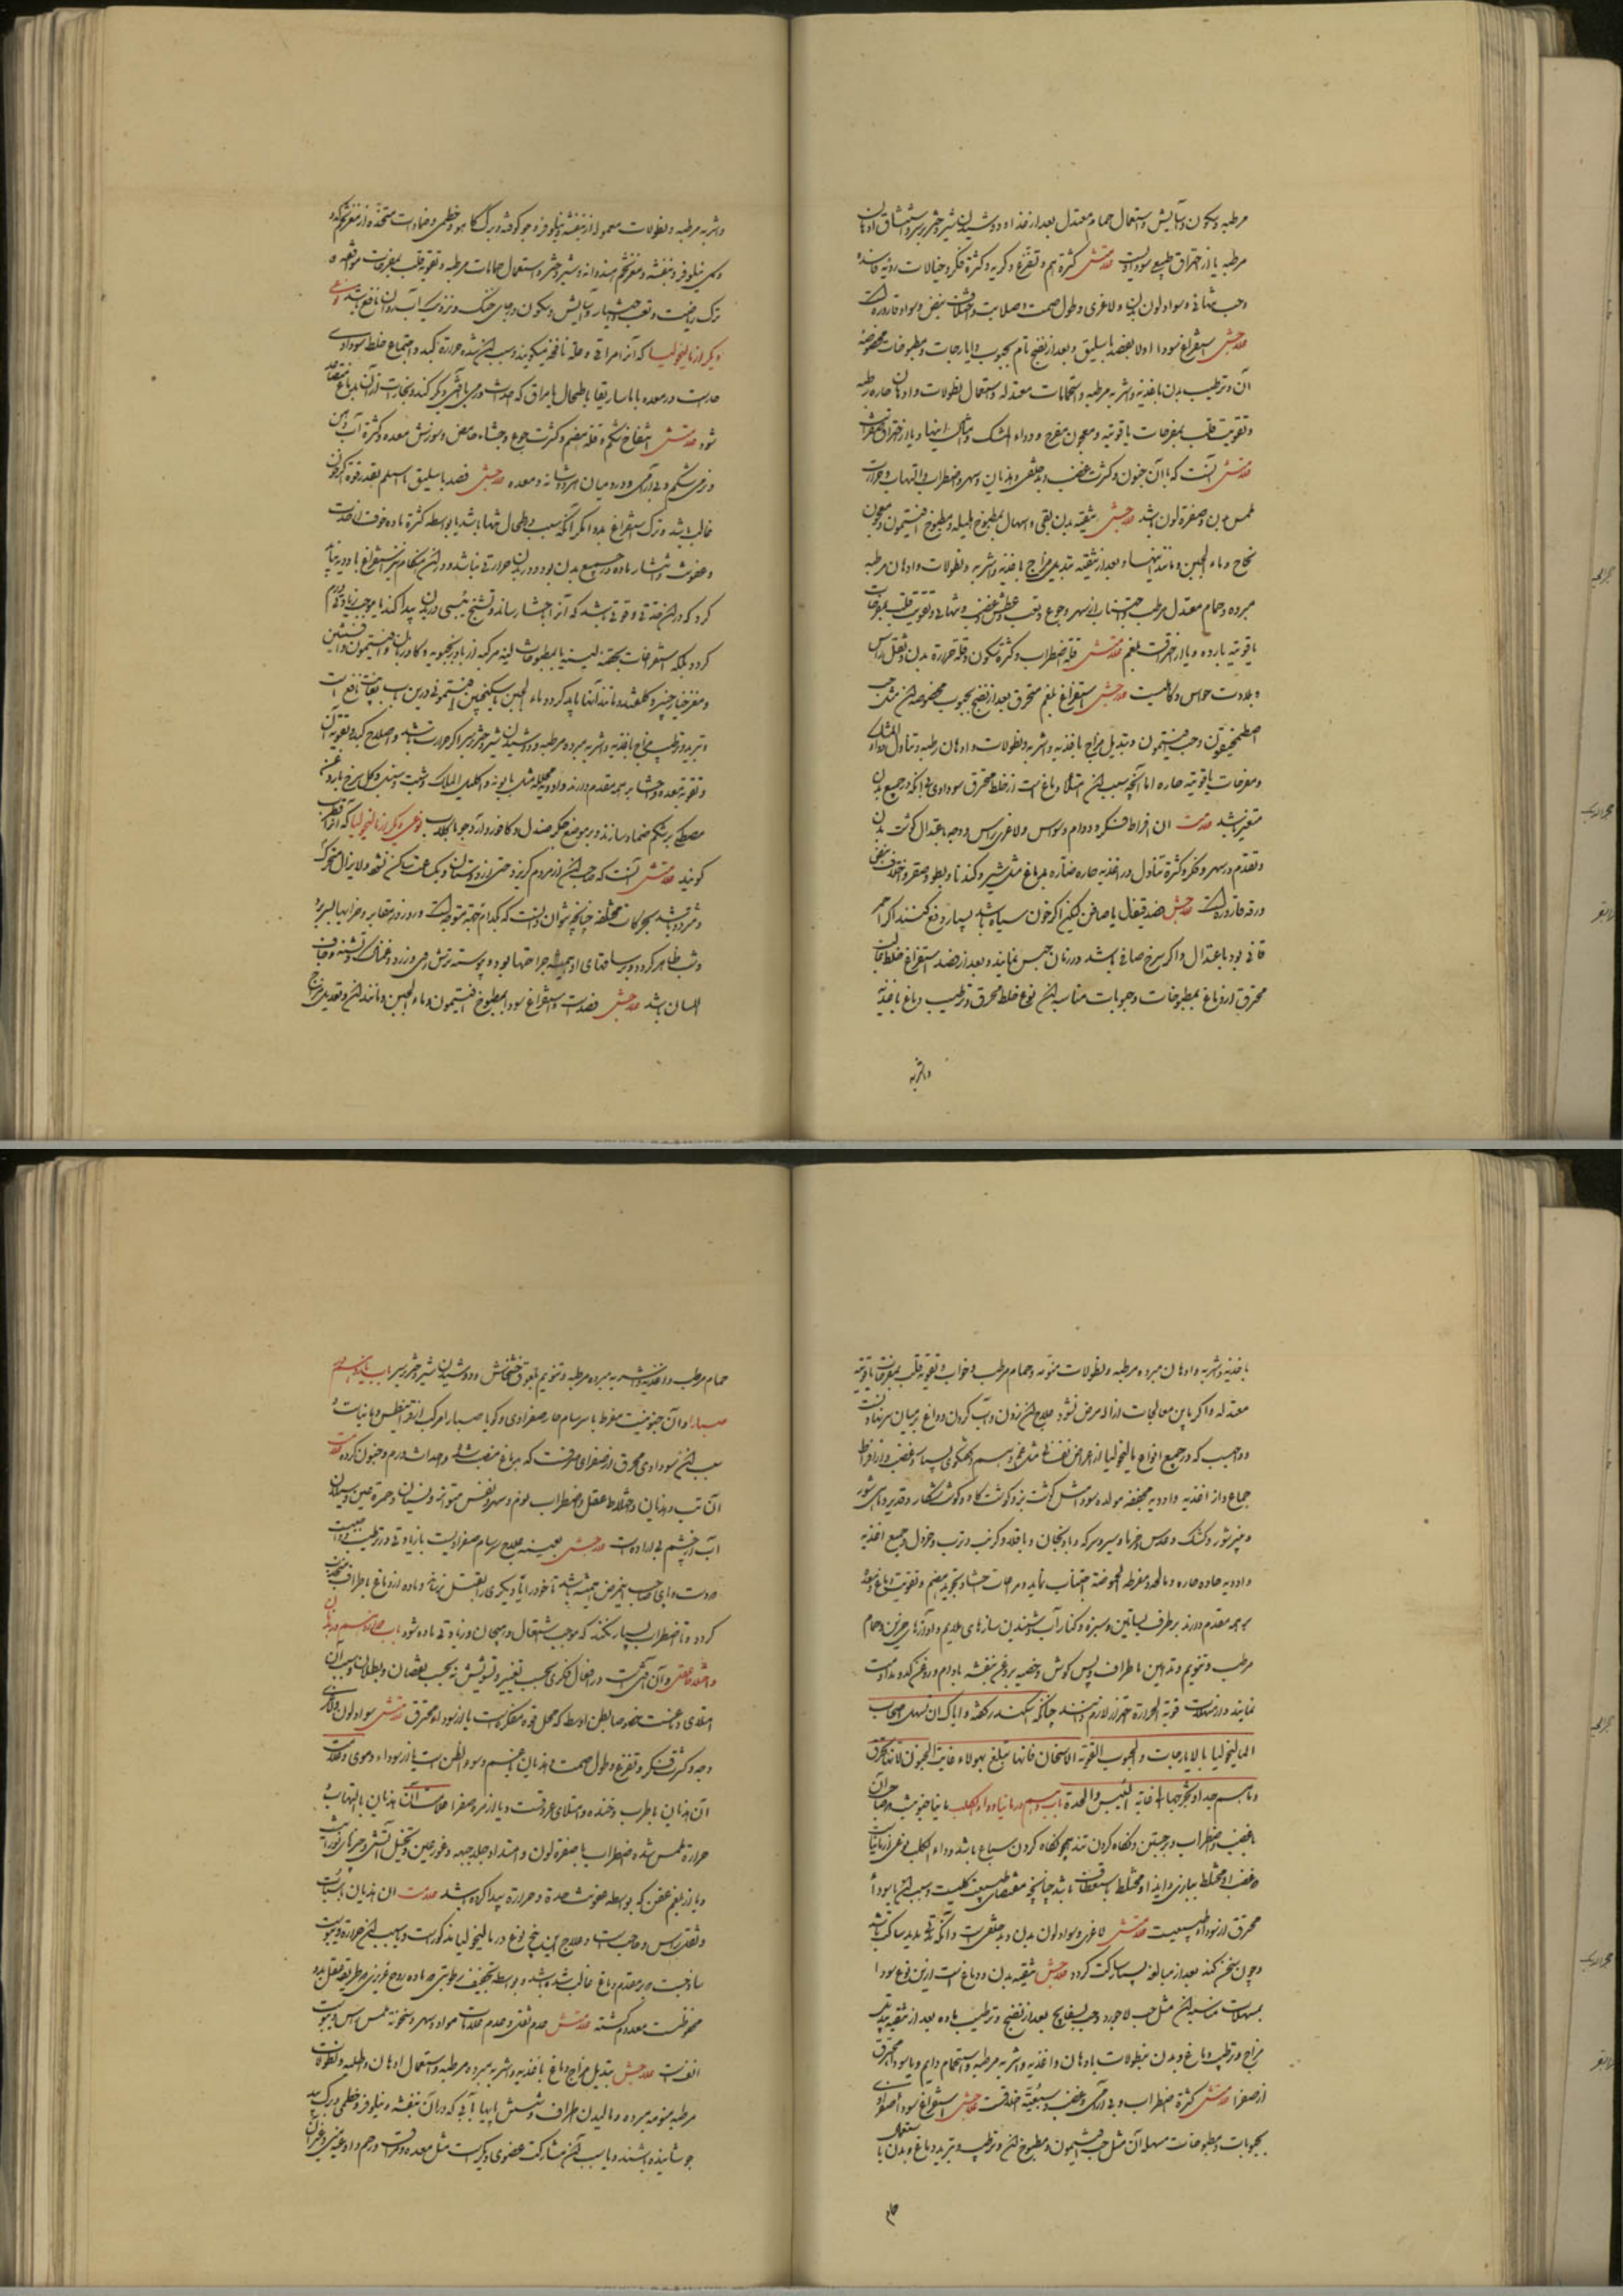 مرطبه و سکون و آسایش و استعمال حمام معتدل بعد از غذا و دوشیدن شیر دختر بر سر و استنشاق ادهان
مرطبه یا از احتراق طبیعی سوداویت علامتش کثرة هم و تفزع و گریه و کثرة فکر و خیالات ردیه فاسده
وحب تنهائی و سواد لون بدن و لاغری و طول صمت و صلابت و اختلاف نبض و سواد قاروره است
علاجش استفراغ سودا اولا بفصد باسلیق و بعد از نضج تام بحبوب و ایارجات و مطبوخات مخصوصه
آن و ترطیب بدن باغذیه و اشربه مرطبه و استحمامات معتدله و استعمال نطولات و ادهان حاره رطبه
و تقویت قلب بمفرحات یاقوتیه و معجون مفرح و دواء المسک و مانند اینها و یا از احتراق صفراست
علامتش آنست که با آن جنون و کثرت غضب و بدخلقی و هذیان و سهر و اضطراب و التهاب و حرارت
لمس بدن و صفرة لون باشد علاجش تنقیه بدن بقی و اسهال بمطبوخ هلیله و مطبوخ افتیمون و معجون
نجاح و ماء الجبن و مانند اینها و بعد از تنقیه تبدیل مزاج باغذیه و اشربه و نطولات و ادهان مرطبه
مبرده و حمام معتدل مرطب و اجتناب از سهر و جوع و تعب و عطش و غضب و تنهائی و تقویت قلب بمفرحات
یاقوتیه بارده و یا از احتراقت بلغم علامتش قلة اضطراب و کثرة سکون و قلة حرارة بدن و ثقل راس
و بلادت حواس و کاهلیست علاجش استفراغ بلغم محترق بعد از نضج بحبوب مخصوصه آن مثل حب
اصطمخیقون وحب افتیمون و تبدیل مزاج باغذیه و اشربه و نطولات و ادهان رطبه و تناول دواء المسک
و مفرحات یاقوتیه حاره اما آنچه سبب آن امتلاء دماغ است از خلط محترق سوداوی بی آنکه در جمیع بدن
منتشر باشد علامت آن افراط فکر و دوام وسواس و لاغری راس و وجه با اعتدال گوشت بدن
و تقدم در سهر و فکر و کثرة تناول در اغذیه حاره ضاره بدماغ مثل سیر و گندنا و بطو و صغر و اختلاف نبض
ورقه قاروره است علاجش فصد قیفال یا صافن لیکن اگر خون سیاه باشد بسیار دفع کنند اگر احمر
قانی بود باعتدال و اگر سرخ صافی باشد در زمان حبس نمایند و بعد از فصد استفراغ خلط غالب
محترق از دماغ بمطبوخات و حبوبات مناسبه آن نوع خلط محرق و ترطیب دماغ باغذیه
واشربه
واشربه مرطبه و نطولات معموله از بنفشه و نیلوفر و جو کوفته و برگ کاهو و خطمی و ضمادات متخذه از مغز تخم کدو
و گل نیلوفر و بنفشه و مغز تخم هندوانه و شیر دختر و استعمال حمامات مرطبه و تقویة قلب بمفرحات موافقه و
ترک ریاضت و تعب و اختیار آسایش و سکون در جای خنک و نزدیک آب روان نافع باشد نوعی
دیگر از مالیخولیا که آنرا مراقی و علة نافخه میگویند و سبب آن شده حرارة کبد و اجتماع خلط سوداوی
حادست در معده یا ماساریقا یا طحال یا مراق که احداث ورمی یا آفتی دیگر کند و بخارات از آن بدماغ متصاعد
شود علامتش انتفاخ شکم و قلة هضم و کثرت جوع و جشاء حامض و سوزش معده و کثرة آب دهن
و نرمی شکم و بی آرامی و درد میان هر دو شانه و معده علاجش فصد باسلیق یا اسلیم بقدر قوة اگر خون
غالب باشد و ترک استفراغ بدوا مگر آنکه سبب در طحال تنها باشد یا بواسطه کثرة ماده خوف احداث
وعفونت و انتشار ماده در جمیع بدن بود و در بدن حرارتی نباشد و در این هنگام نیز استفراغ بادویه نباید
کرد که در آن حدتی و قوتی باشد که آنرا باحشا رساند و تشنج یبسی در بدن پیدا کند یا موجب زیادتی ورم
گردد بلکه استفراغات بحقنه لینه یا بمطبوخات لینه مرکبه از بادرنجبویه و گاوزبان و افتیمون و افسنتین
و مغز خیارچنبر و گلقند و مانند آنها باید کرد و ماء الجبن با سکنجبین افتیمونی درین باب بغایت نافع است
و تبرید و ترطیب مزاج باغذیه و اشربه مبرده مرطبه و دوشیدن شیر دختر بر سر اگر حرارت باشد و اصلاح کبد و تقویة آن
و تقویة معده و احشا بر همه مقدم دارند و ادویه محلله مثل بابونه و اکلیل الملک و شبت و سنبل و گل سرخ با روغن
مصطکی بر شکم ضماد سازند و بر موضع جگر صندل و کافور و آرد جو با گلاب نوعی دیگر از مالیخولیا که آنرا قطرب
گویند علامتش آنست که صاحب آن از مردم گریزد حتی از دوستان و یکساعت ساکن نشود و لایزال متحرک
و متردد باشد بحرکات مختلفه چنانچه نتوان دانست که بکدام جهة متوجه است و روز در مقابر و خرابها بسر برد
و شب ظاهر گردد و بر ساقهای او همیشه جراحتها بود و پیوسته ترش روی و زرد و غمناک و تشنه و جاف
اللسان باشد علاجش فصدست و استفراغ سودا بمطبوخ افتیمون و ماء الجبن و مانند آن و تعدیل مزاج
باغذیه و اشربه و ادهان مبرده مرطبه و نطولات منومه و حمام مرطب و خواب و تقویة قلب بمفرحات یاقوتیه
معتدله و اگر باین معالجات ازاله مرض نشود علاج آن زدن و آب کردن و داغ بر میان سر نهادنست
و واجب که در جمیع انواع مالیخولیا از اعراض نفسانی مثل غم و هم و گفتگوی بسیار و غضب و از افراط
جماع و از اغذیه و ادویه مجففه مولده سودا مثل گوشت بز و گوشت گاو و گوشت شکار و قدید و ماهی شور
و پنیر شور و کشک و عدس و خرما و سیر و سرکه و بادنجان و باقلا و کرنب و ترب و خردل و جمیع اغذیه
و ادویه حاده حاره و مالحه و مفرطه الحموضة اجتناب نماید و مراعات احشا و تجوید هضم و تقویت دماغ و معده
بر همه مقدم دارند بر طرف بساتین و سبزه و کنار آب و شنیدن سازهای ملایم و آوازهای حزین و حمام
مرطب و تنویم و تدهین باطراف و پس گوش و خصیه بروغن بنفشه بادام و روغن کدو مداومت
نمایند و از مسهلات قویة الحرارة احتراز لازم دانند چنانکه اسکندر گفته و ایاک ان تسهل اصحاب
المالیخولیا بالایارجات و الحبوب القویة الاسخان فانها تبلغ بهولاء غایت الجنون لانها تحرق
دمائهم جدا و تخرجها الی غایة الیبس و الحدة باب دهم در مانیا و داء الکلب مانیا جنونیست صاحب آن
با غضب و اضطراب و برجستن و نگاه کردن تند همچو نگاه کردن سباع باشد و داء الکلب نوعی از مانیاست
و غضب او مختلط ببازی و ایذا و مختلط باستعطاف باشد چنانچه مقتضای طبیعت کلبست و سبب آن یا سوداء
محترق از سوداء طبیعیست علامتش لاغری و سواد لون بدن و بدخلقی است و آنکه تا کلمه نکند ساکت باشد
و چون سخن کند بعد از مبالغه بسیار ساکت گردد علاجش تنقیه بدن و دماغ است ازین نوع سودا
بمسهلات مناسبه آن مثل حب لاجورد وحب بسفایج بعد از نضج و ترطیب ماده بعد از تنقیه تبدیل
مزاج و ترطیب دماغ و بدن بنطولات و ادهان و اغذیه و اشربه مرطبه و استحمام دایم و یا سوداء محترق
از صفرا علامتش کثرة اضطراب و بی آرامی و غضب و سبعیت اخلاقست علاجش استفراغ سوداء صفراوی
بحبوبات و مطبوخات مسهله آن مثل حب افتیمون و مطبوخ آن و ترطیب و تبرید دماغ و بدن باستعمال
حمام
حمام مرطب و اغذیه و اشربه مبرده مرطبه و تنویم بلعوق خشخاش و دوشیدن شیر دختر بر سر باب یازدهم در
صبارا و آن جنونیست مفرط با سرسام حار صفراوی و گویا صبارا مرکب از قرانیطس و مانیاست و
سبب آن سوداوی محرق از صفرای صرفست که بدماغ منصب شود و احداث ورم و جنون کرده علامت
آن تب و هذیان و اختلاط عقل و اضطراب نوم و سهر و نفس متواتر و نسیان و حمرة عین و سیلان
آب از چشم بی ارادت علاجش بعینه علاج سرسام صفراویست با زیادتی در ترطیب و واجبست
دست و پای صاحب این مرض بسته باشد تا خود را یا دیگری را بقتل نرساند و ماده از دماغ باطراف منجذب
گردد و تا اضطراب بسیار نکند که موجب اشتعال و هیجان و زیادتی ماده شود باب دوازدهم در هذیان
و اختلاط عقل و آن آفتیست در افعال فکری بحسب تغییر و تشویش نه بحسب نقصان و بطلان و سبب آن
امتلای دماغست خصوصا بطن اوسط که محل قوه مفکره است یا از سوداء محترق علامتش سواد لون و لاغری
وجه و کثرت فکر و تفزع و طول صمت و هذیان با غم و سوء الظن است یا از سوداء دموی و علامت
آن هذیان با طرب و خنده و امتلای عروقست و یا از مره صفرا علامت آن هذیان با التهاب و
حرارة لمس و شدة اضطراب با صفرة لون و امتداد جلد جبهه و غور عین و تخیل آتش و چیزهای نورانیست
و یا از بلغم عفن که بواسطه عفونت حدة و حرارة پیدا کرده باشد علامت آن هذیان با سبات
و ثقل راس و حاجب است و علاج این پنج نوع در مالیخولیا مذکورست و یا سبب آن حرارة و یبوست
ساذجست که بر مقدم دماغ غالب شده باشد و بواسطه تجفیف رطوبتی که ماده روح غریزی و طریق فعل بدو
محفوظست معدوم گشته علامتش عدم ثقل و عدم علامات مواد و سهر و سخونة لمس راس و یبوست
انفست علاجش تبدیل مزاج دماغ باغذیه و اشربه مبرده مرطبه و استعمال ادهان و اطلیه و نطولات
مرطبه منومه مبرده و مالیدن اطراف و شستن پایها بآبی که در آن بنفشه و نیلوفر و خطمی و برگ بید
جوشانیده باشند و یا سبب آن مشارکت عضوی دیگرست مثل معده و مراق و رحم و اوعیه منی و غیر آن